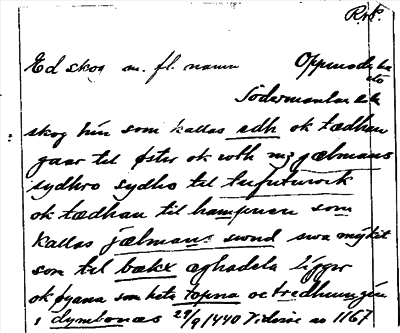 Ed skog m. fl. namn Oppunda hd
Södermanland
skog hin som kallas edh ok tædhan
gaar til øster ok wth mz jælmans
sydhro sydho til
ok tædhan til hampnen som
kallas jælmans swnd swa mykit
som til bækx æghadela ligger
ok øyana som heta topna oc tredhungin
i dymbonæs 29/9 1440 Vidisse av 1167